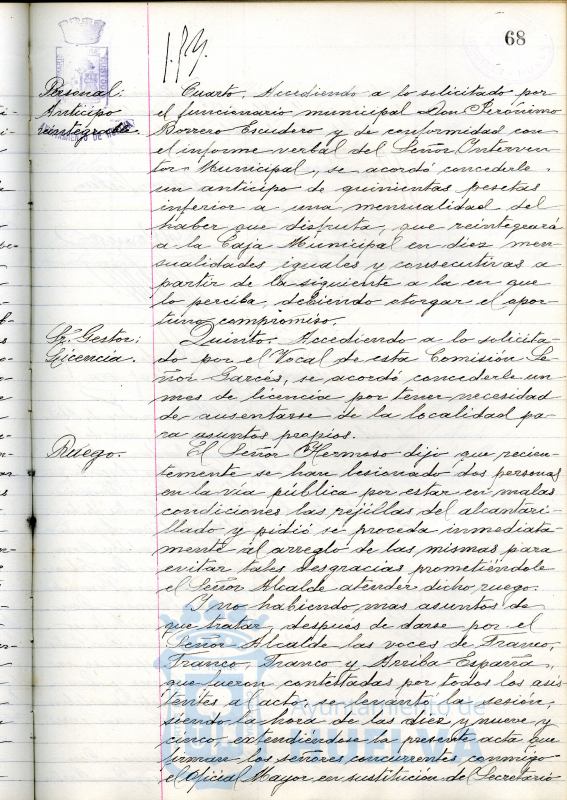 68
Personal:
Anticipo
reintegrable.
Cuarto. Accediendo a lo solicitado por
el funcionario municipal Don Jerónimo
Borrero Escudero y de conformidad con
el informe verbal del Señor Interven
tor Municipal, se acordó concederle
un anticipo de quinientas pesetas
inferior a una mensualidad del
haber que disfruta, que reintegrará
a la Caja Municipal en diez men
sualidades iguales y consecutivas a
partir de la siguiente a la en que
lo perciba, debiendo otorgar el opor-
tuno compromiso.
Sr. Gestor:
Licencia.
Quinto. Accediendo a lo solicita-
do por el Vocal de esta Comisión Se
ñor Garcés, se acordó concederle un
mes de licencia por tener necesidad
de ausentarse de la localidad pa-
ra asuntos propios.
Ruego.
El Señor Hermoso dijo que recien-
temente se han lesionado dos personas
en la vía pública por estar en malas
condiciones las rejillas del alcantari-
llado y pidió se proceda inmediata-
mente al arreglo de las mismas para
evitar tales desgracias prometiéndole
el Señor Alcalde atender dicho ruego.
Y no habiendo mas asuntos de
que tratar, después de darse por el
Señor Alcalde las voces de Franco,
Franco, Franco y Arriba España,
que fueron contestadas por todos los asis-
tentes al acto, se levantó la sesión,
siendo la hora de las diez y nueve y
cinco, extendiéndose la presente acta que
firman los señores concurrentes conmigo
el Oficial Mayor, en sustitución del Secretario
Ayuntamiento de
HUELVA